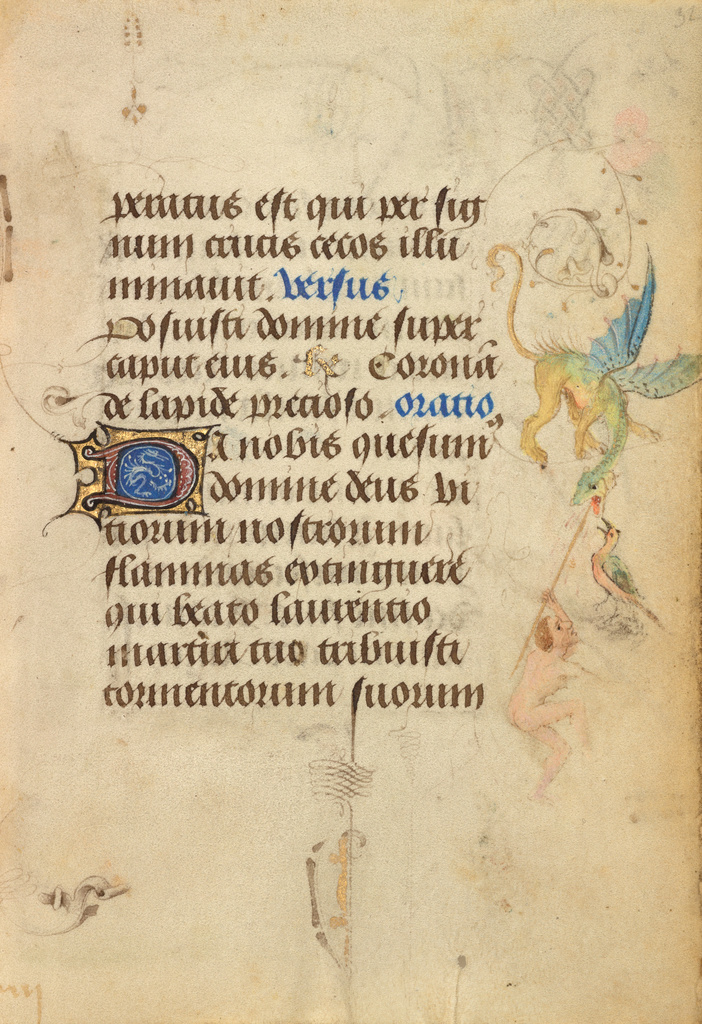 32
peratus est qui per sig
num crucis cecos illu
minauit. versus
Posuisti domine super
caput eius. R Coronā
de lapide precioso. oratio
Da nobis quesum9
domine deus vi
tiorum nostrorum
flammas extinguere
qui beato laurentio
martiri tuo tribuisti
tormentorum suorum